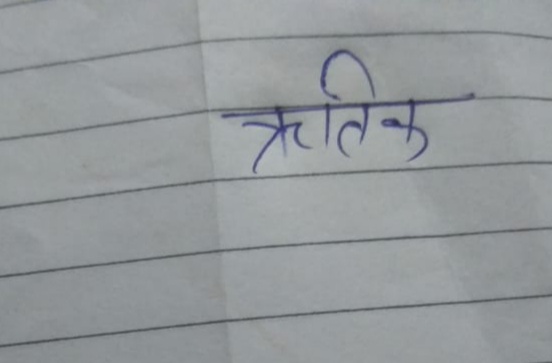 ऋतिक